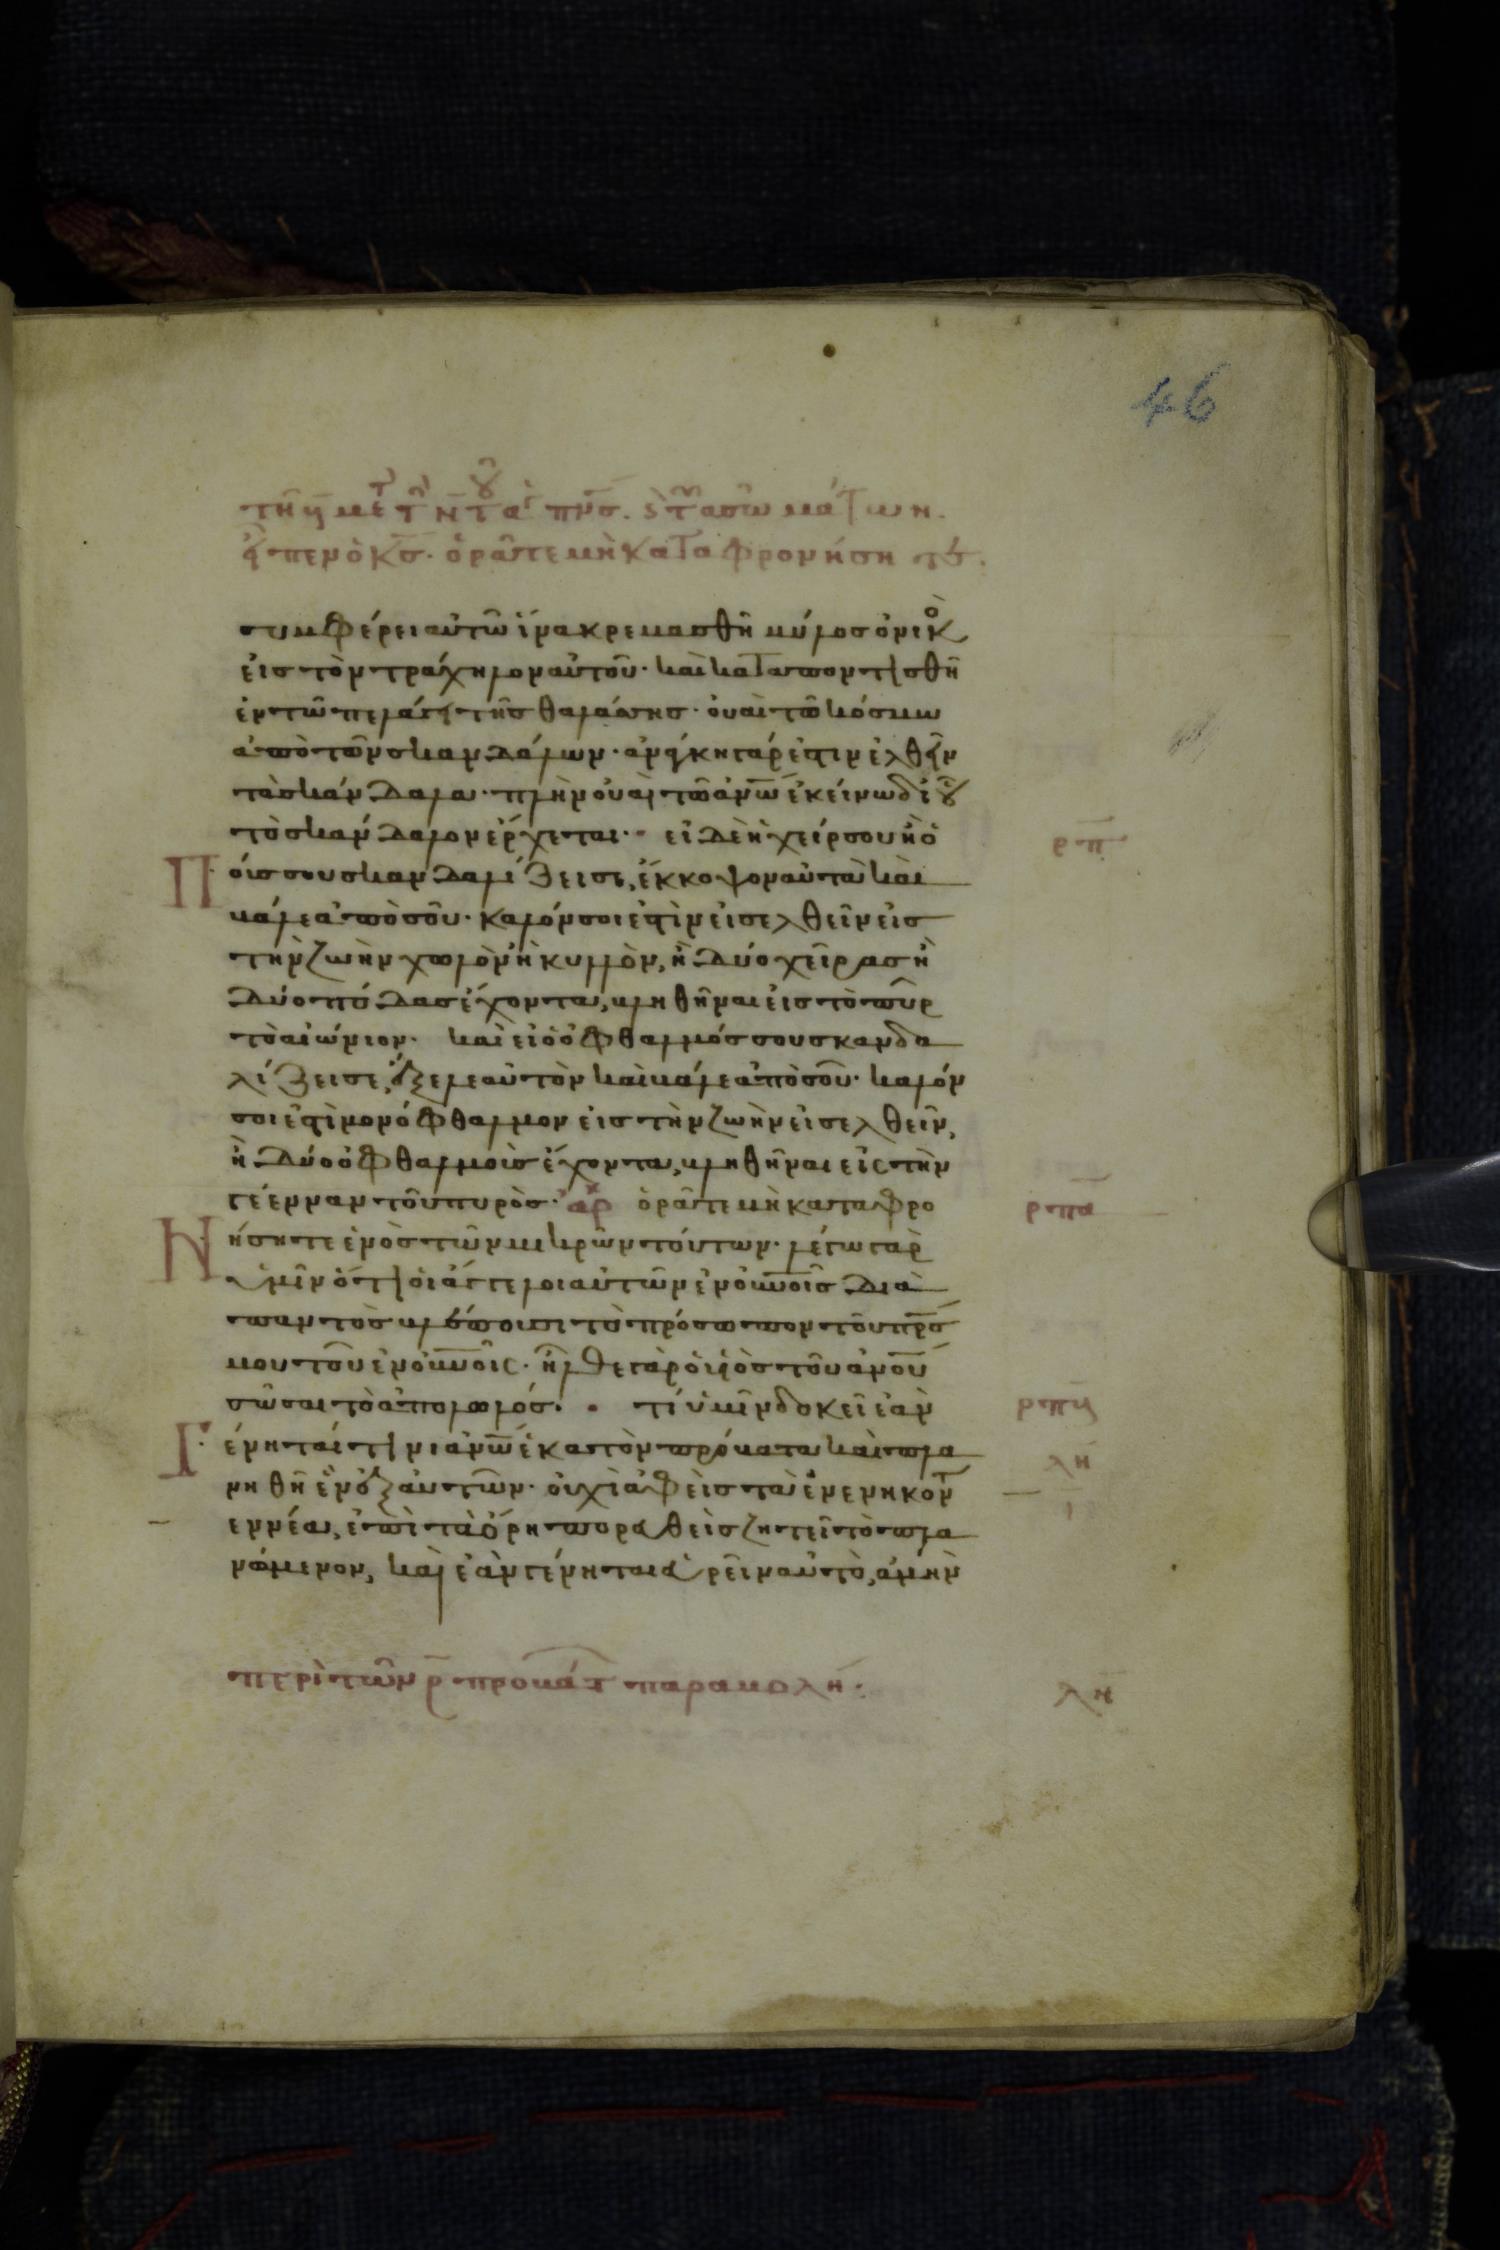 46
συμφέρει αὐτῶ ἵνα κρεμασθῆ μύλοσ ὀνικὸ
εἰσ τὸν τράχηλον αὐτοῦ· καὶ καταποντισθῆ
ἐν τῶ πελάγει τῆσ θαλάσσησ· οὐαὶ τῶ κόσμω
ἀπὸ τῶν σκανδάλων· ἀνάγκη γάρ ἐστιν ἐλθεῖν
τὰ σκάνδαλα· πλὴν οὐαὶ τῶ ἀνω ἐκείνω δι οὗ
τὸ σκάνδαλον ἔρχεται· εἰ δὲ ἡ χείρ σου ἢ ὁ
ρπ
Π
όυσ σου σκανδαλίζει σε, ἔκκοψον αὐτὰ καὶ
βάλε ἀπὸ σοῦ· καλόν σοι ἐστὶν εἰσελθεῖν εἰσ
τὴν ζωὴν χωλὸν ἢ κυλλὸν, ἢ δύο χεῖρασ ἢ
δύο πόδασ ἔχοντα, βληθῆναι εἰσ τὸ πῦρ
τὸ αἰώνιον· καὶ εἰ ὁ ὀφθαλμόσ σου σκανδα
λίζει σε, ἔξελε αὐτὸν καὶ βάλε ἀπὸ σοῦ· καλόν
σοι ἐστὶ μονόφθαλμον εἰσ τὴν ζωὴν εἰσελθεῖν,
ἢ δύο ὀφθαλμοὺσ ἔχοντα, βληθῆναι εἰς τὴν
γέενναν τοῦ πυρὸσ· ἀρ ὁρᾶτε μὴ καταφρο
ρπα
Ν
ήσητε ἑνὸσ τῶν μικρῶν τούτων· λέγω γὰρ
ὑμῖν ὅτι οἱ ἄγγελοι αὐτῶν ἐν οὐνοῖσ δια
παντὸσ βλέπουσι τὸ πρόσωπον τοῦ πρσ
μου τοῦ ἐν οὐνοῖς· ἦλθε γὰρ ὁ υἱὸσ τοῦ ἀνου
σῶσαι τὸ ἀπολωλόσ· τί ὑμῖν δοκεῖ ἐὰν
ρπβ
Γ
ένηταί τινι ἀνω ἑκατὸν πρόβατα καὶ πλα
λη
νηθῆ ἓν ἐξ αὐτῶν· οὐχὶ ἀφεὶσ τὰ ἐνενηκοντ
εννέα, ἐπὶ τὰ ὄρη πορευθεὶσ ζητεῖ τὸ πλα
νώμενον, καὶ ἐὰν γένηται εὑρεῖν αὐτὸ, ἀμὴν
περὶ τῶν ρ προβάτ παραβολή·
λη